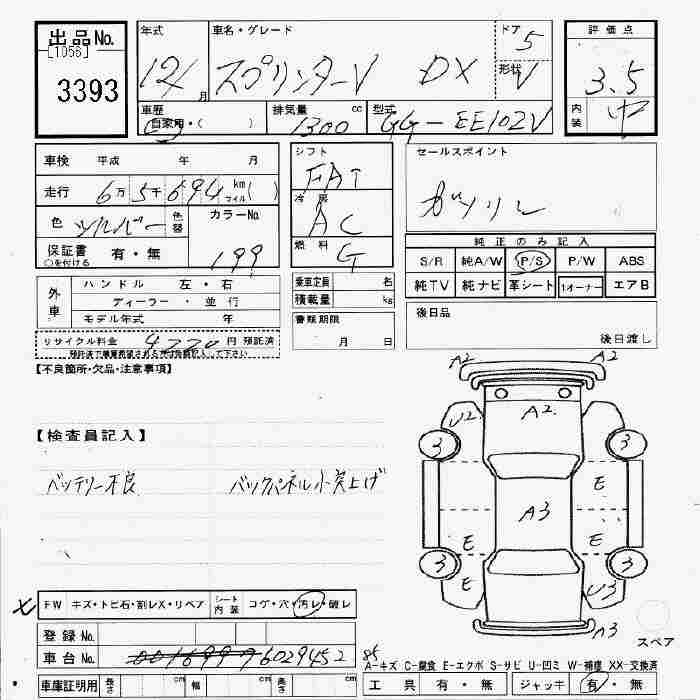 出品No.
[1056]
3393
年式
12/
月
車名・グレード
スプリンターV DX
ドア
5
形状
V
評価点
3.5
内装
中
車歴
自家用・(　)
排気量
cc
1300
型式
GG-EE102V
車検 平成 年 月
走行 6万5千694 km マイル( )
色
シルバー
色替
カラーNo.
199
保証書
○を付ける
有・無
シフト
FAT
冷房
AC
燃料
G
セールスポイント
ガソリン
純正のみ記入
S/R 純A/W P/S P/W ABS
純TV 純ナビ 革シート 1オーナー エアB
外車
ハンドル 左・右
ディーラー・並行
モデル年式 年
乗車定員 名
積載量 kg
書類期限
月 日
後日品
後日渡し
リサイクル料金 円 預託済
【不良箇所・欠品・注意事項】
【検査員記入】
バッテリー不良
バックパネル小突上げ
A2
A2
U2
A2
3
3
E
A3
E
E
3
3
E
U3
A3
スペア
X FW キズ・トビ石・割レX・リペア シート内装 コゲ・穴・汚レ・破レ
登録No.
車台No. 0016999 6029452
車庫証明用 長さ cm 幅 cm 高さ cm
A-キズ C-腐食 E-エクボ S-サビ U-凹ミ W-補修 XX-交換済
工具 有・無 ジャッキ 有・無